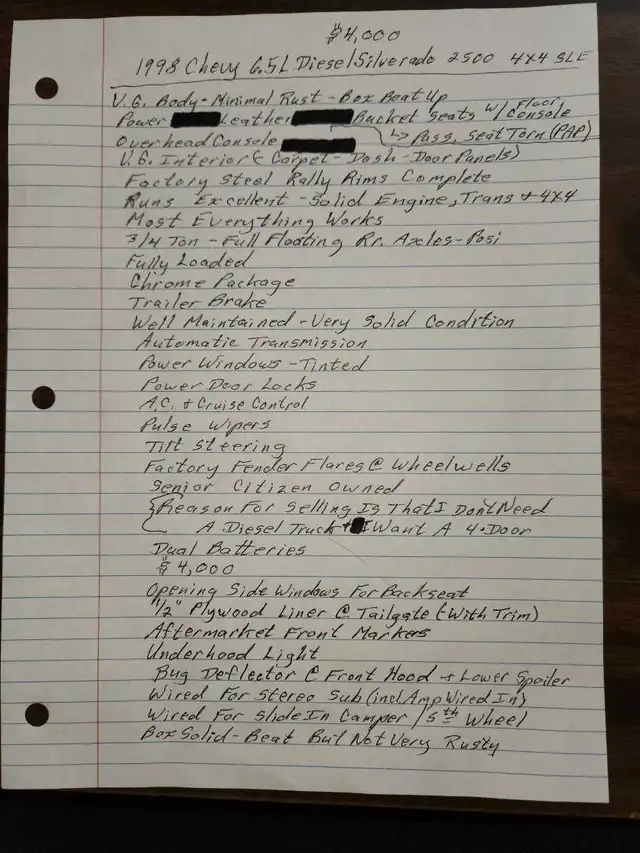 $4,000
1998 Chevy 6.5L Diesel Silverado 2500 4x4 SLE
V.G. Body - Minimal Rust - Box Beat Up
Power Leather Bucket Seats w/ Floor Console
↳ Pass. Seat Torn (PAP)
Overhead Console
V.G. Interior (& Carpet - Dash - Door Panels)
Factory Steel Rally Rims Complete
Runs Excellent - Solid Engine, Trans + 4x4
Most Everything Works
3/4 Ton - Full Floating Rr. Axles - Posi
Fully Loaded
Chrome Package
Trailer Brake
Well Maintained - Very Solid Condition
Automatic Transmission
Power Windows - Tinted
Power Door Locks
A.C. + Cruise Control
Pulse Wipers
Tilt Steering
Factory Fender Flares @ Wheelwells
Senior Citizen Owned
Reason For Selling Is That I Don't Need
A Diesel Truck + I Want A 4-Door
Dual Batteries
$4,000
Opening Side Windows For Backseat
1/2" Plywood Liner @ Tailgate (With Trim)
Aftermarket Front Markers
Underhood Light
Bug Deflector @ Front Hood + Lower Spoiler
Wired For Stereo Sub (incl Amp Wired In)
Wired For Slide In Camper / 5th Wheel
Box Solid - Beat But Not Very Rusty